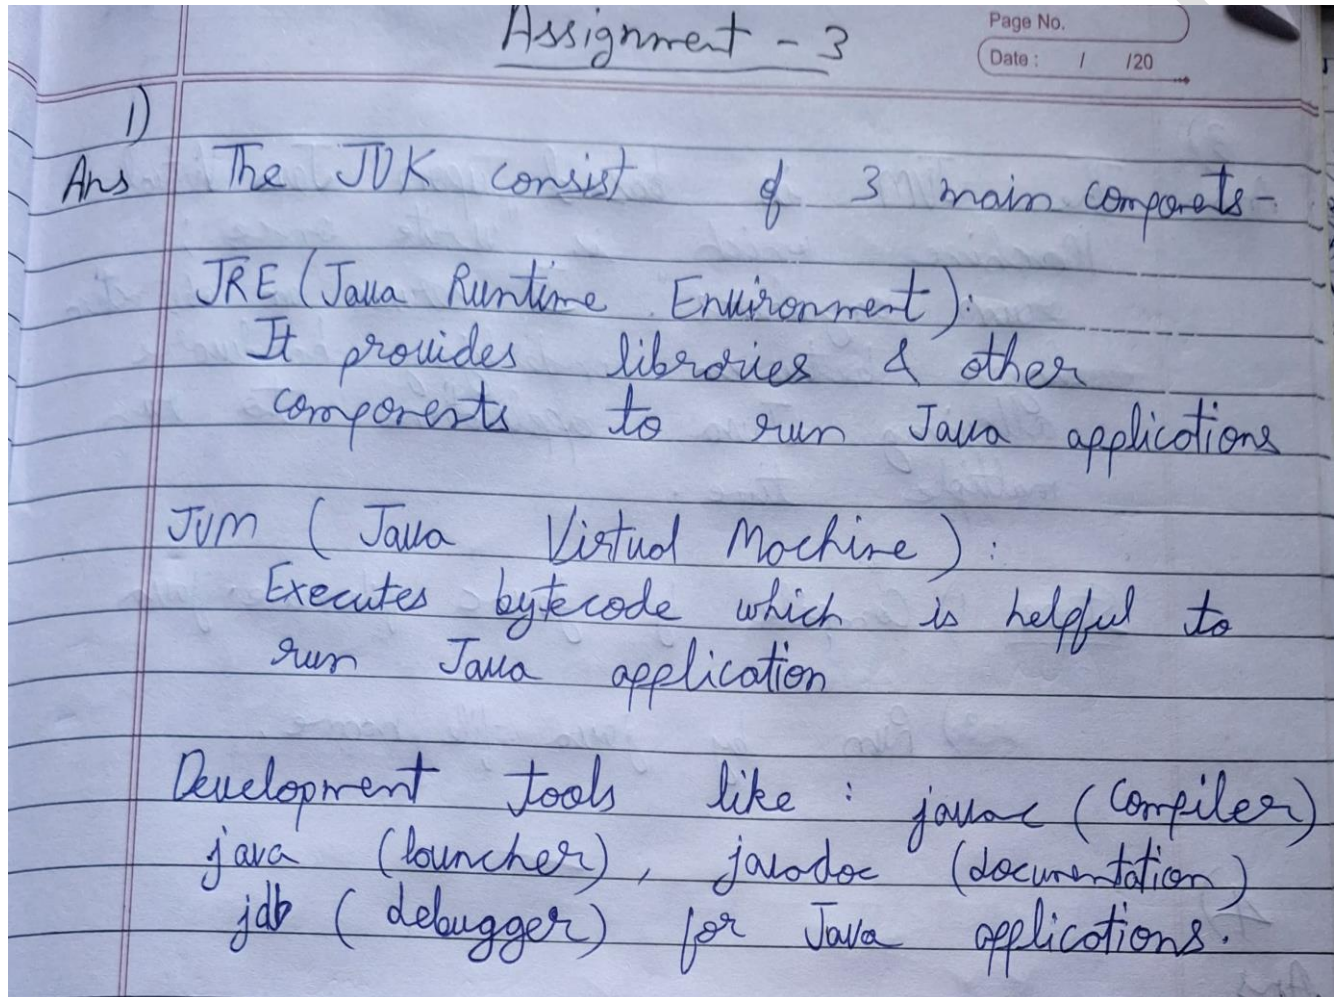 Assignment - 3
Page No.
Date : / /20
1)
Ans The JDK consist of 3 main components-
JRE (Java Runtime Environment):
It provides libraries & other
components to run Java applications
JVM ( Java Virtual Machine ) :
Executes bytecode which is helpful to
run Java application
Development tools like : javac (Compiler)
java (launcher), javadoc (documentation)
jdb ( debugger) for Java applications.